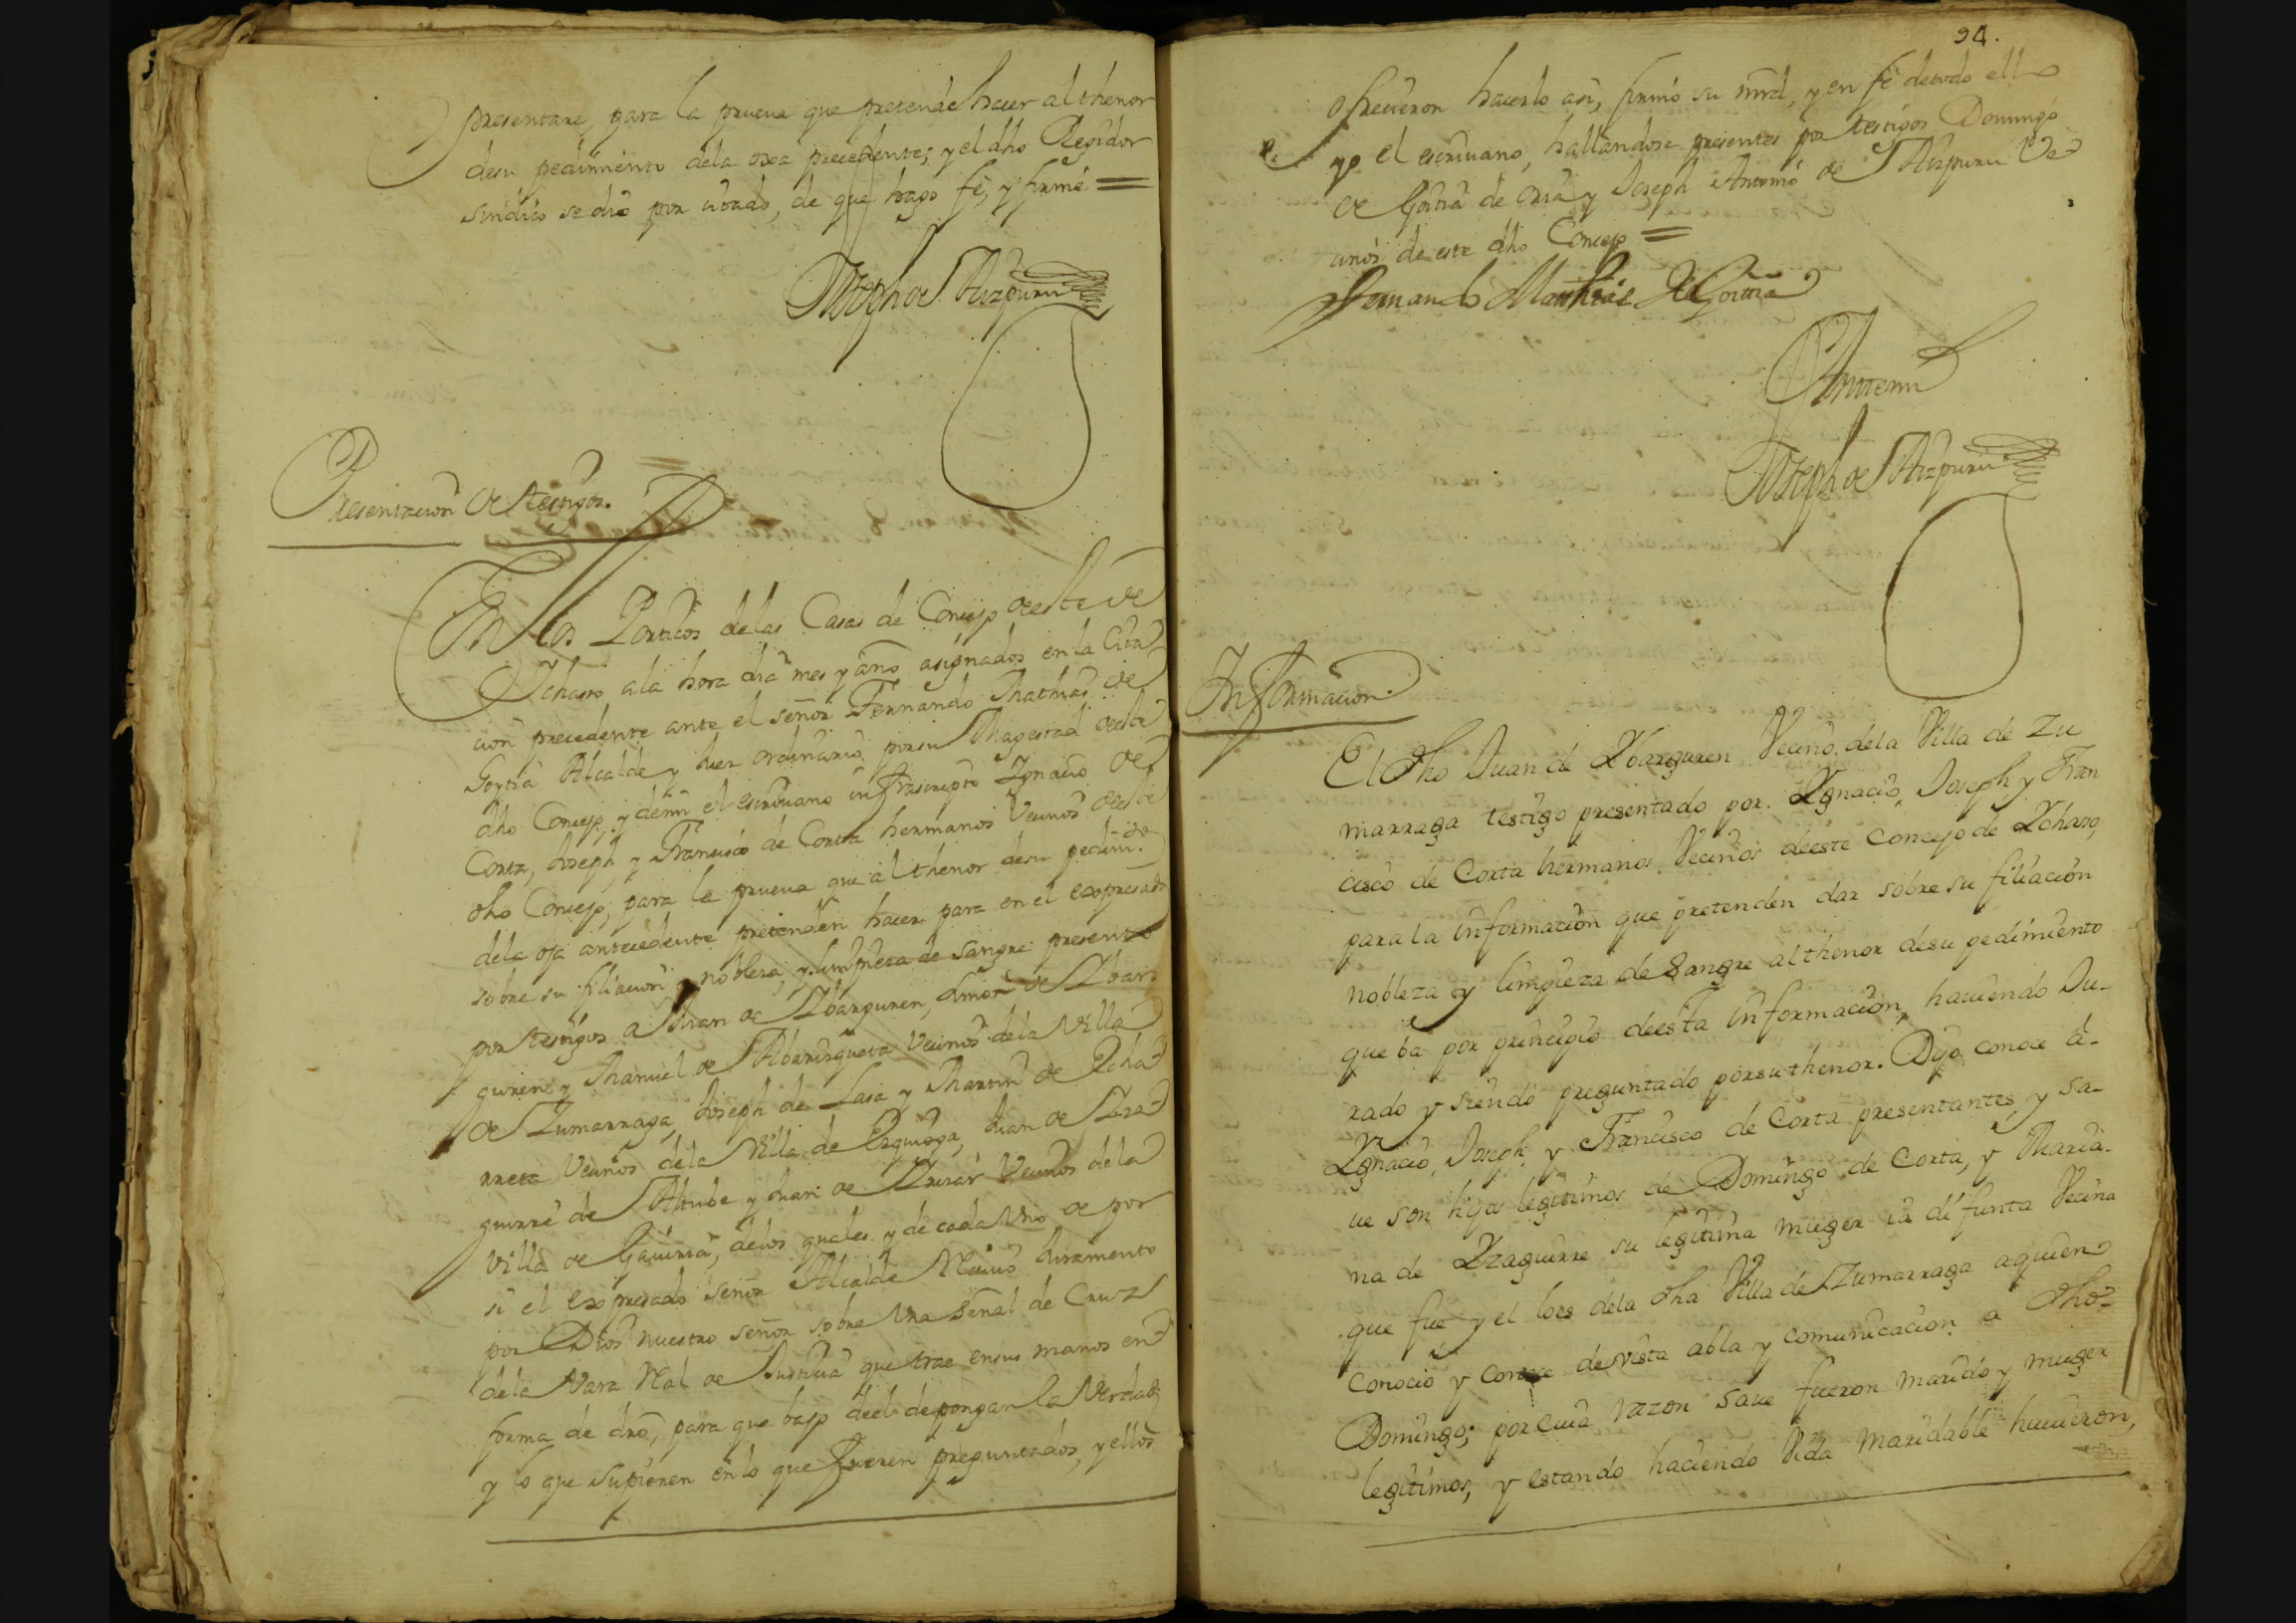 presentare, para la prueva que pretende hacer al thenor
desu pedimiento dela oxa precedente; y el dho Regidor
sindico se dio por citado, de que hago fè, y firmè =
Joseph de Aizpuru
Presentacion de testigos.
En los Porticos delas Casas de Concejo de este de
Ychaso ala hora dia mes y año asignados en la Cita
cion precedente ante el señor Fernando Mathias de
Goytia Alcalde y Juez ordinario por su Magestad deeste
dho Concejo, y demi el escrivano infrascripto Ignacio de
Corta, Joseph y Francisco de Corta hermanos Vecinos deeste
dho Concejo, para la prueva que al thenor desu pedim.to
dela oja antecedente pretenden hacer para en el expresado
sobre su filiacion nobleza, y limpieza de sangre presento
por testigos a Juan de Ybarguren, Simon de Ybar
guren y Manuel de Abarizqueta Vecinos dela Villa
de Zumarraga, Joseph de Lasa y Martin de Echa
rreta Vecinos dela Villa de Ezquioga, Juan de Yza
guirre de Altube y Juan de Vecinos dela
Villa de Gaviria, delos quales y de cada Uno de por
si el expresado señor Alcalde Recivio Juramento
por Dios nuestro señor sobre Una señal de Cruz
dela Vara Ral de Justicia que trae ensus manos en
forma de dro, para que bajo deel depongan la Verdad
y lo que supieren en lo que fueren preguntados, y ellos
94.
ofrecieron hacerlo asi, firmò su mrd, y en fè detodo ello
yo el escrivano, hallandose presentes por testigos Domingo
de Goitia de Oria y Joseph Antonio de Aizpuru Ve
cinos de este dho Concejo =
Fernando Mathias de Goitia
Ante mi
Joseph de Aizpuru
Informacion.
El dho Juan de Ybarguren Vecino dela Villa de Zu
marraga testigo presentado por Ygnacio, Joseph y Fran
cisco de Corta hermanos Vecinos deeste Concejo de Ychaso,
para la informacion que pretenden dar sobre su filiacion
nobleza y limpieza de Sangre al thenor desu pedimiento
que ba por principio deesta informacion, haciendo Ju-
rado y siendo preguntado por su thenor. Dijo conoce a-
Ygnacio, Joseph y Francisco de Corta presentantes, y sa-
ve son hijos legitimos de Domingo de Corta, y Maria-
na de Yzaguirre su legitima muger ia difunta Vecina
que fue y el loes dela dha Villa de Zumarraga aquien
conocio y conoce de vista abla y comunicacion a dho-
Domingo; por cuia razon save fueron marido y muger
legitimos, y estando haciendo Vida maridable huvieron,